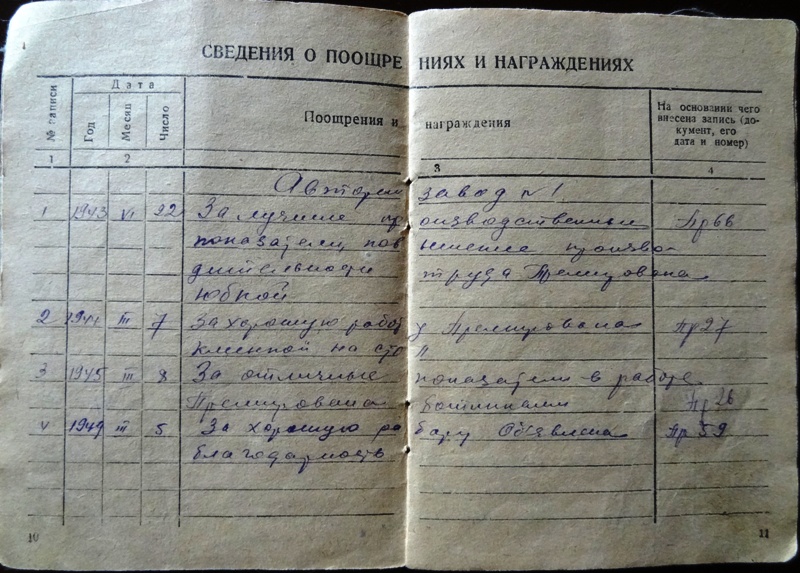 СВЕДЕНИЯ О ПООЩРЕНИЯХ И НАГРАЖДЕНИЯХ
№ записи
Дата
Год
Месяц
Число
Поощрения и награждения
На основании чего внесена запись (документ, его дата и номер)
1 2 3 4
завод №1
1 1943 VI 22 За лучшие производственные Пр 66
показатели повышение произво-
дительности труда Премирована
юбкой
2 1944 III 7 За хорошую работу Премирована Пр 27
3 1945 III 8 За отличные показатели в работе
Премирована ботинками Пр 26
1949 III 5. За хорошую работу Объявлена Пр 59
благодарность
10
11